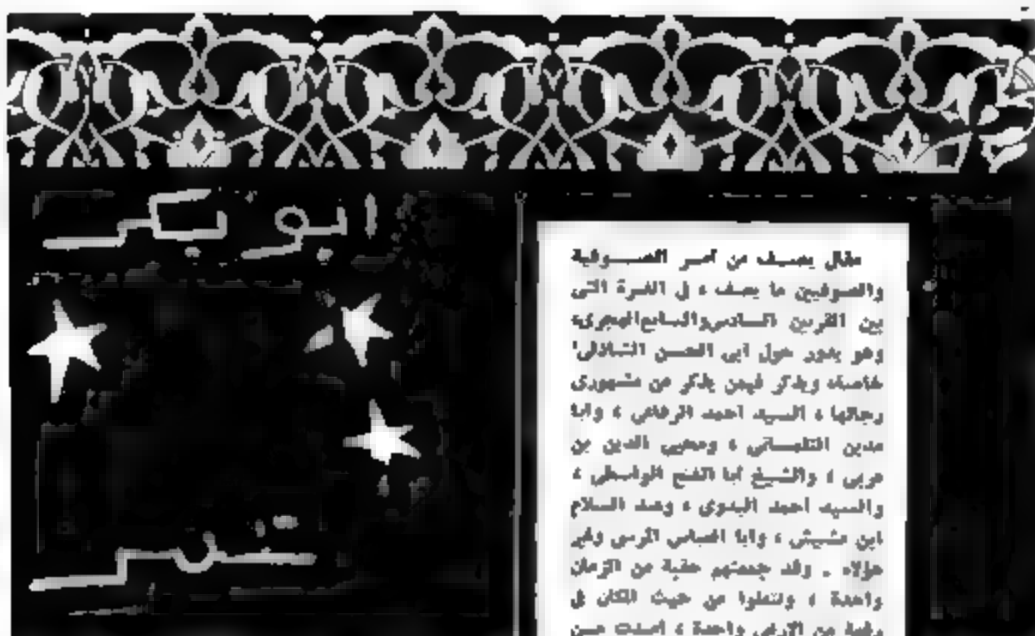 ابو بكر
مقال يصف من أمر الصوفية
والصوفيين ما يصف ، في الفترة التي
بين القرنين السادس والسابع الهجري،
وهو يدور حول أبي الحسن الشاذلي
خاصة، ويذكر فيمن يذكر من مشهوري
رجالها ، السيد أحمد الرفاعي ، وأبا
مدين التلمساني ، ومحيي الدين بن
عربي ، والشيخ أبا الفتح الواسطي ،
والسيد أحمد البدوي ، وعبد السلام
ابن مشيش ، وأبا العباس المرسي وغير
هؤلاء . وقد جمعتهم حقبة من الزمان
واحدة ، وتنقلوا من حيث المكان في
رقعة من الأرض واحدة ، امتدت من